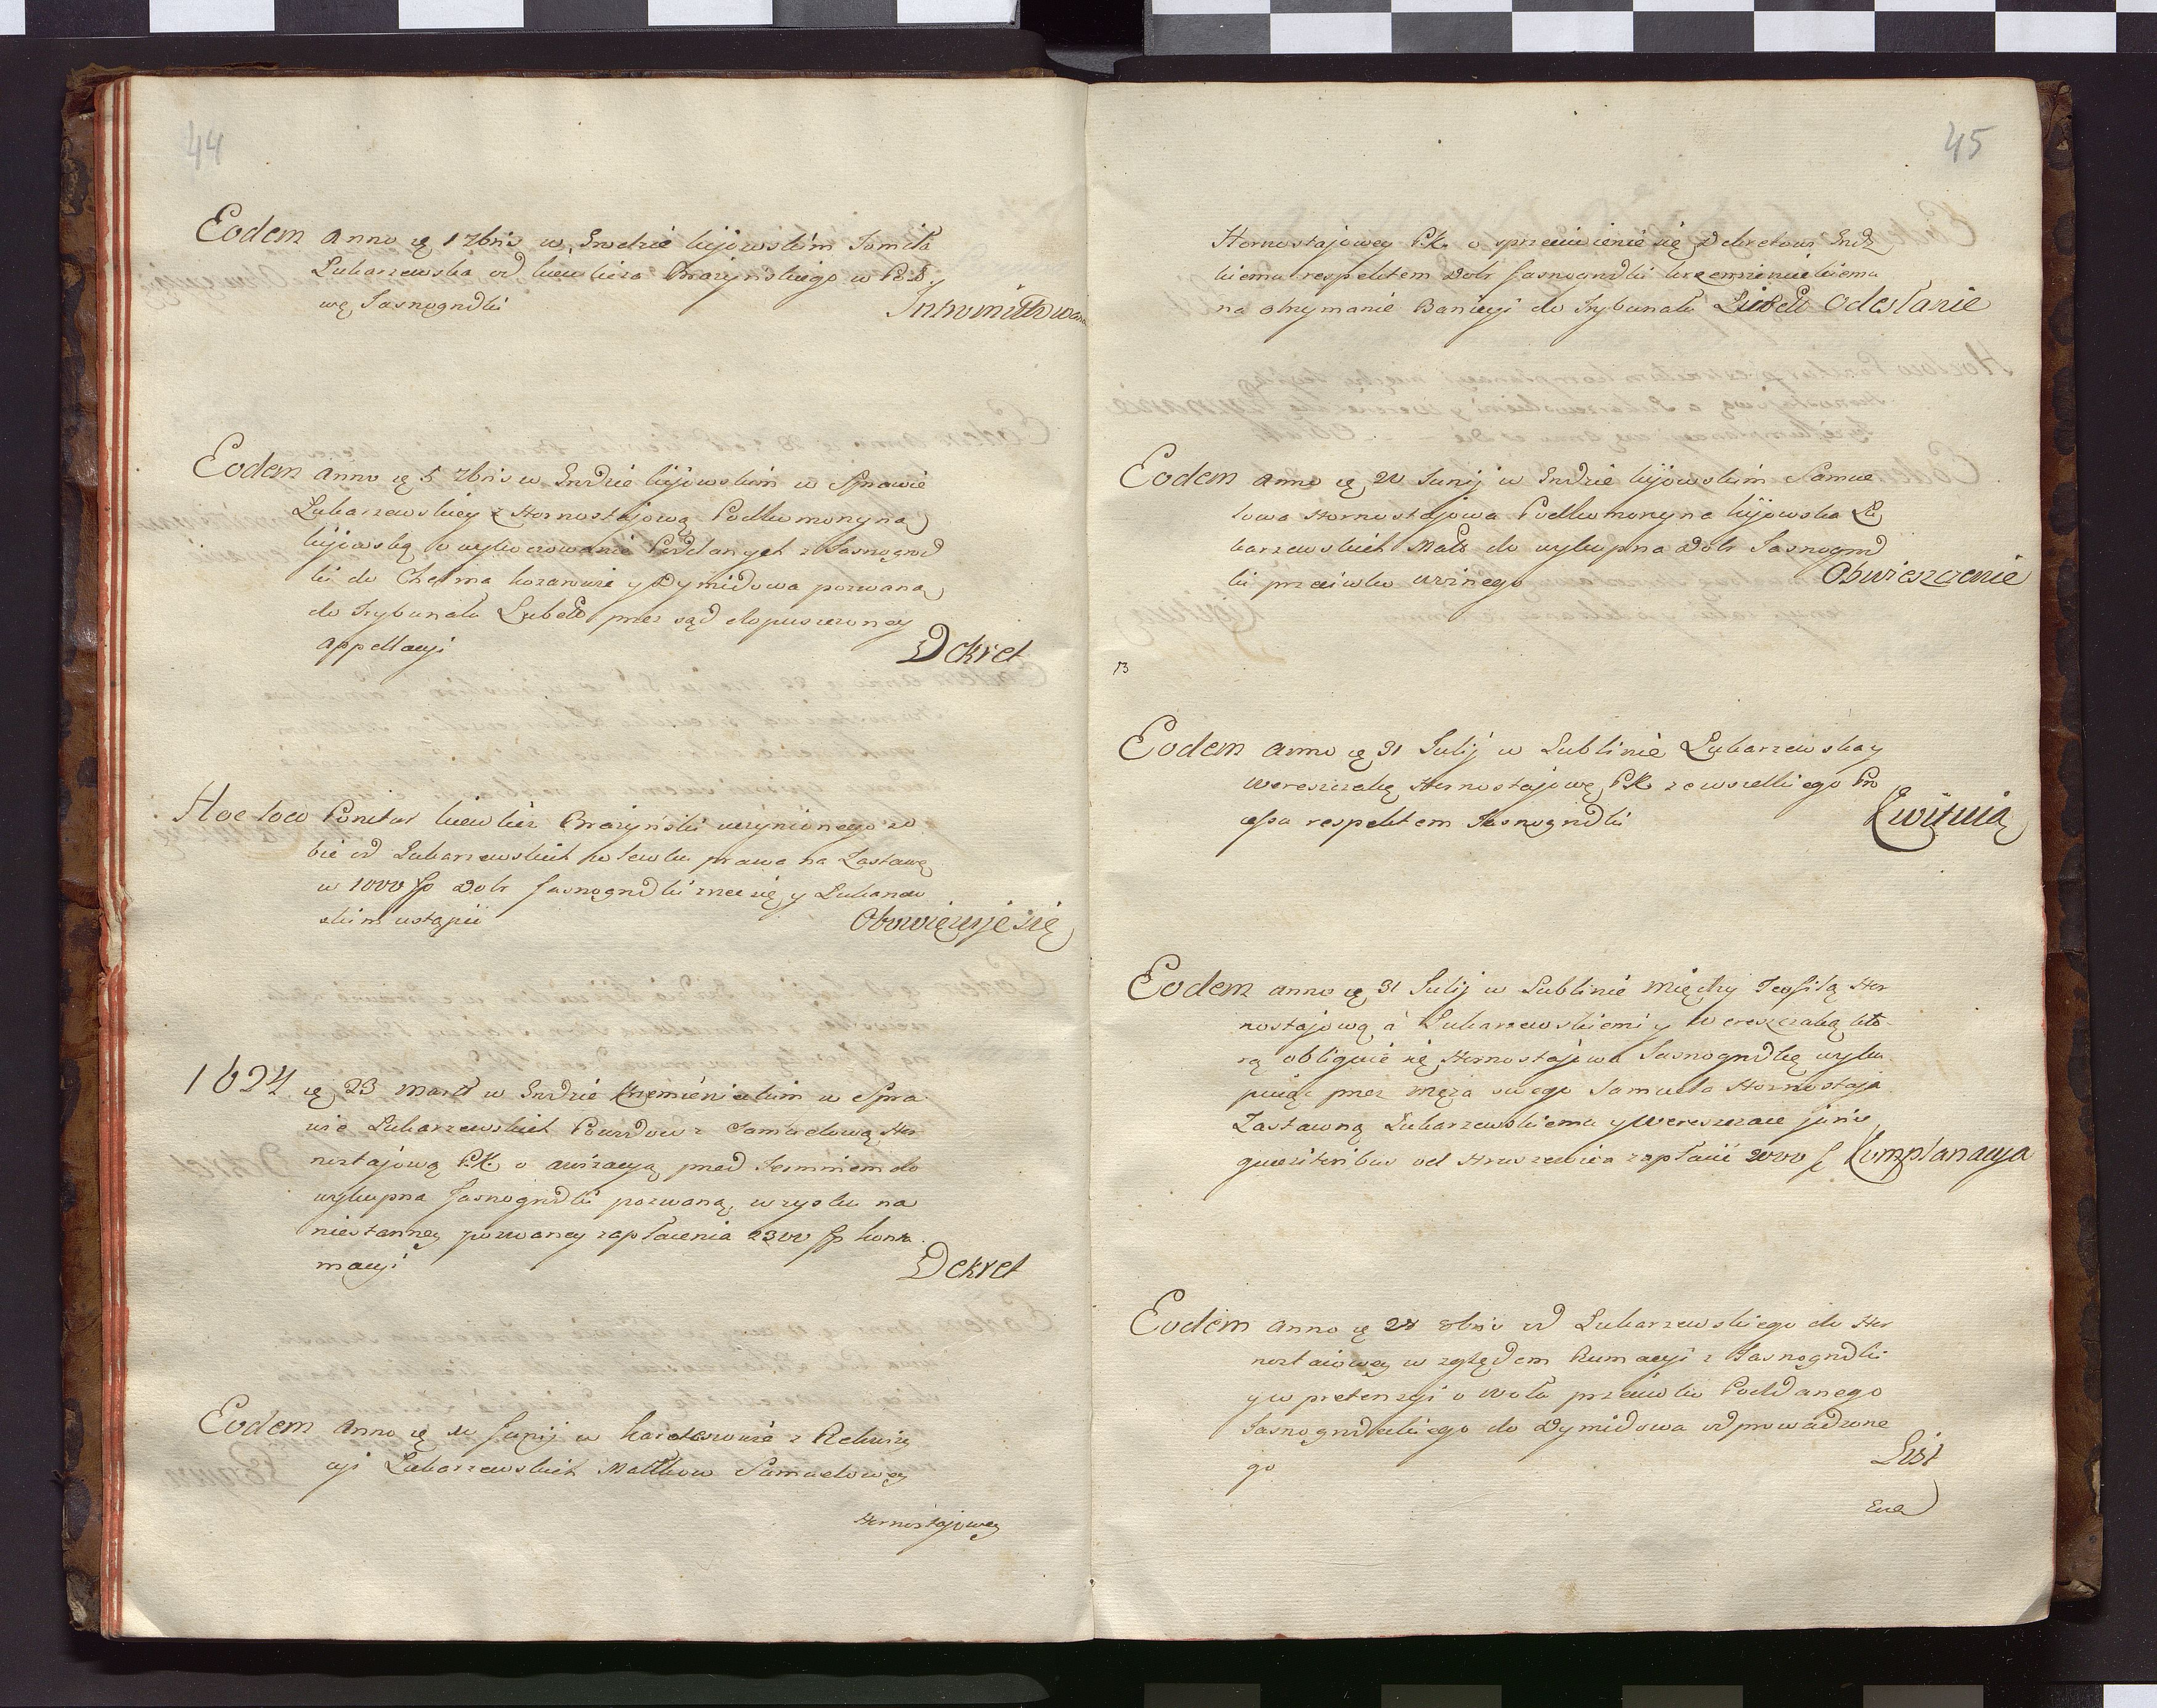 44
Eodem anno ię 1 7bris w Grodzie kijowskim Jomiła
Lubarzewska od Kiewlicza Brazyńskiego w Poło
wę Jasnogrodki Intromittowana
Eodem anno ię 5 7bris w Grodzie kijowskim w Sprawie
Lubarzewskiey z Hornostajową Podkomorzyną
kijowską o wykocowanie Poddanych z Jasnogrod
ki do Chełma y Dymidowa pozwaną
do Trybunału Lubel: przez sąd dopuszczoney
appellacyi Dekret
Hoc loco Ponitur Kiewlicz Brazyński uczynionego so
bie od Lubarzewskich prawa na Zastawę
w 1000 fp Dobr Jasnogrodki y Lubarzew
skim ustąpić Obowięzuje się
1624 ię 23 Marti w Grodzie Krzemienieckim w Spra
wie Lubarzewskich Powodow z Samuelową Hor
nostajową P.K. o awizacyą przed Terminem do
wykupna Jasnogrodki pozwaną, w zysku na
niestanney pozwaney zapłacenia 2300 fp kontu
macyi Dekret
Eodem anno ię Junij w z Rekwizy
cyi Lubarzewskich Małżkow Samuelowey
Hornostajowey
45
Hornostajowey P.K. o sprzeciwienie się Dekretowi Grodz
kiemu respektem Dobr Jasnogrodki krzemienieckiemu
na otrzymanie Banicyi do Trybunału Lubel: Odesłanie
Eodem anno ię 20 Junij w Grodzie kijowskim Samue
lowa Hornostajowa Podkomorzyna kijowska Lu
barzewskich Małż: do wykupna Dobr Jasnogrod
ki przeciwko Obwieszczenie
13
Eodem anno ię 31 Julij w Lublinie Lubarzewska y
Wereszczaką Hornostajowę P.K. ze wszelkiego Pro
cessu respektem Jasnogrodki Kwituią
Eodem anno ię 31 Julij w Lublinie między Teofilą Hor
nostajową a Lubarzewskiemi y Wereszczaką kto
rą obliguie się Hornostajowa Jasnogrodkę wyku
puiąc przez męża swego Samuela Hornostaja
Zastawną Lubarzewskiemu y Wereszczace juris
quesitoribus od Hruszewicza zapłacić 2000 f Komplanacya
Eodem anno ię 28 8bris od Lubarzewskiego do Hor
nostaiowey w zględem Rumacyi z Jasnogrodki
y w pretensyi o Woła przeciwko Poddanego
Jasnogrodeckiego do Dymidowa odprowadzone
go List
Ewa